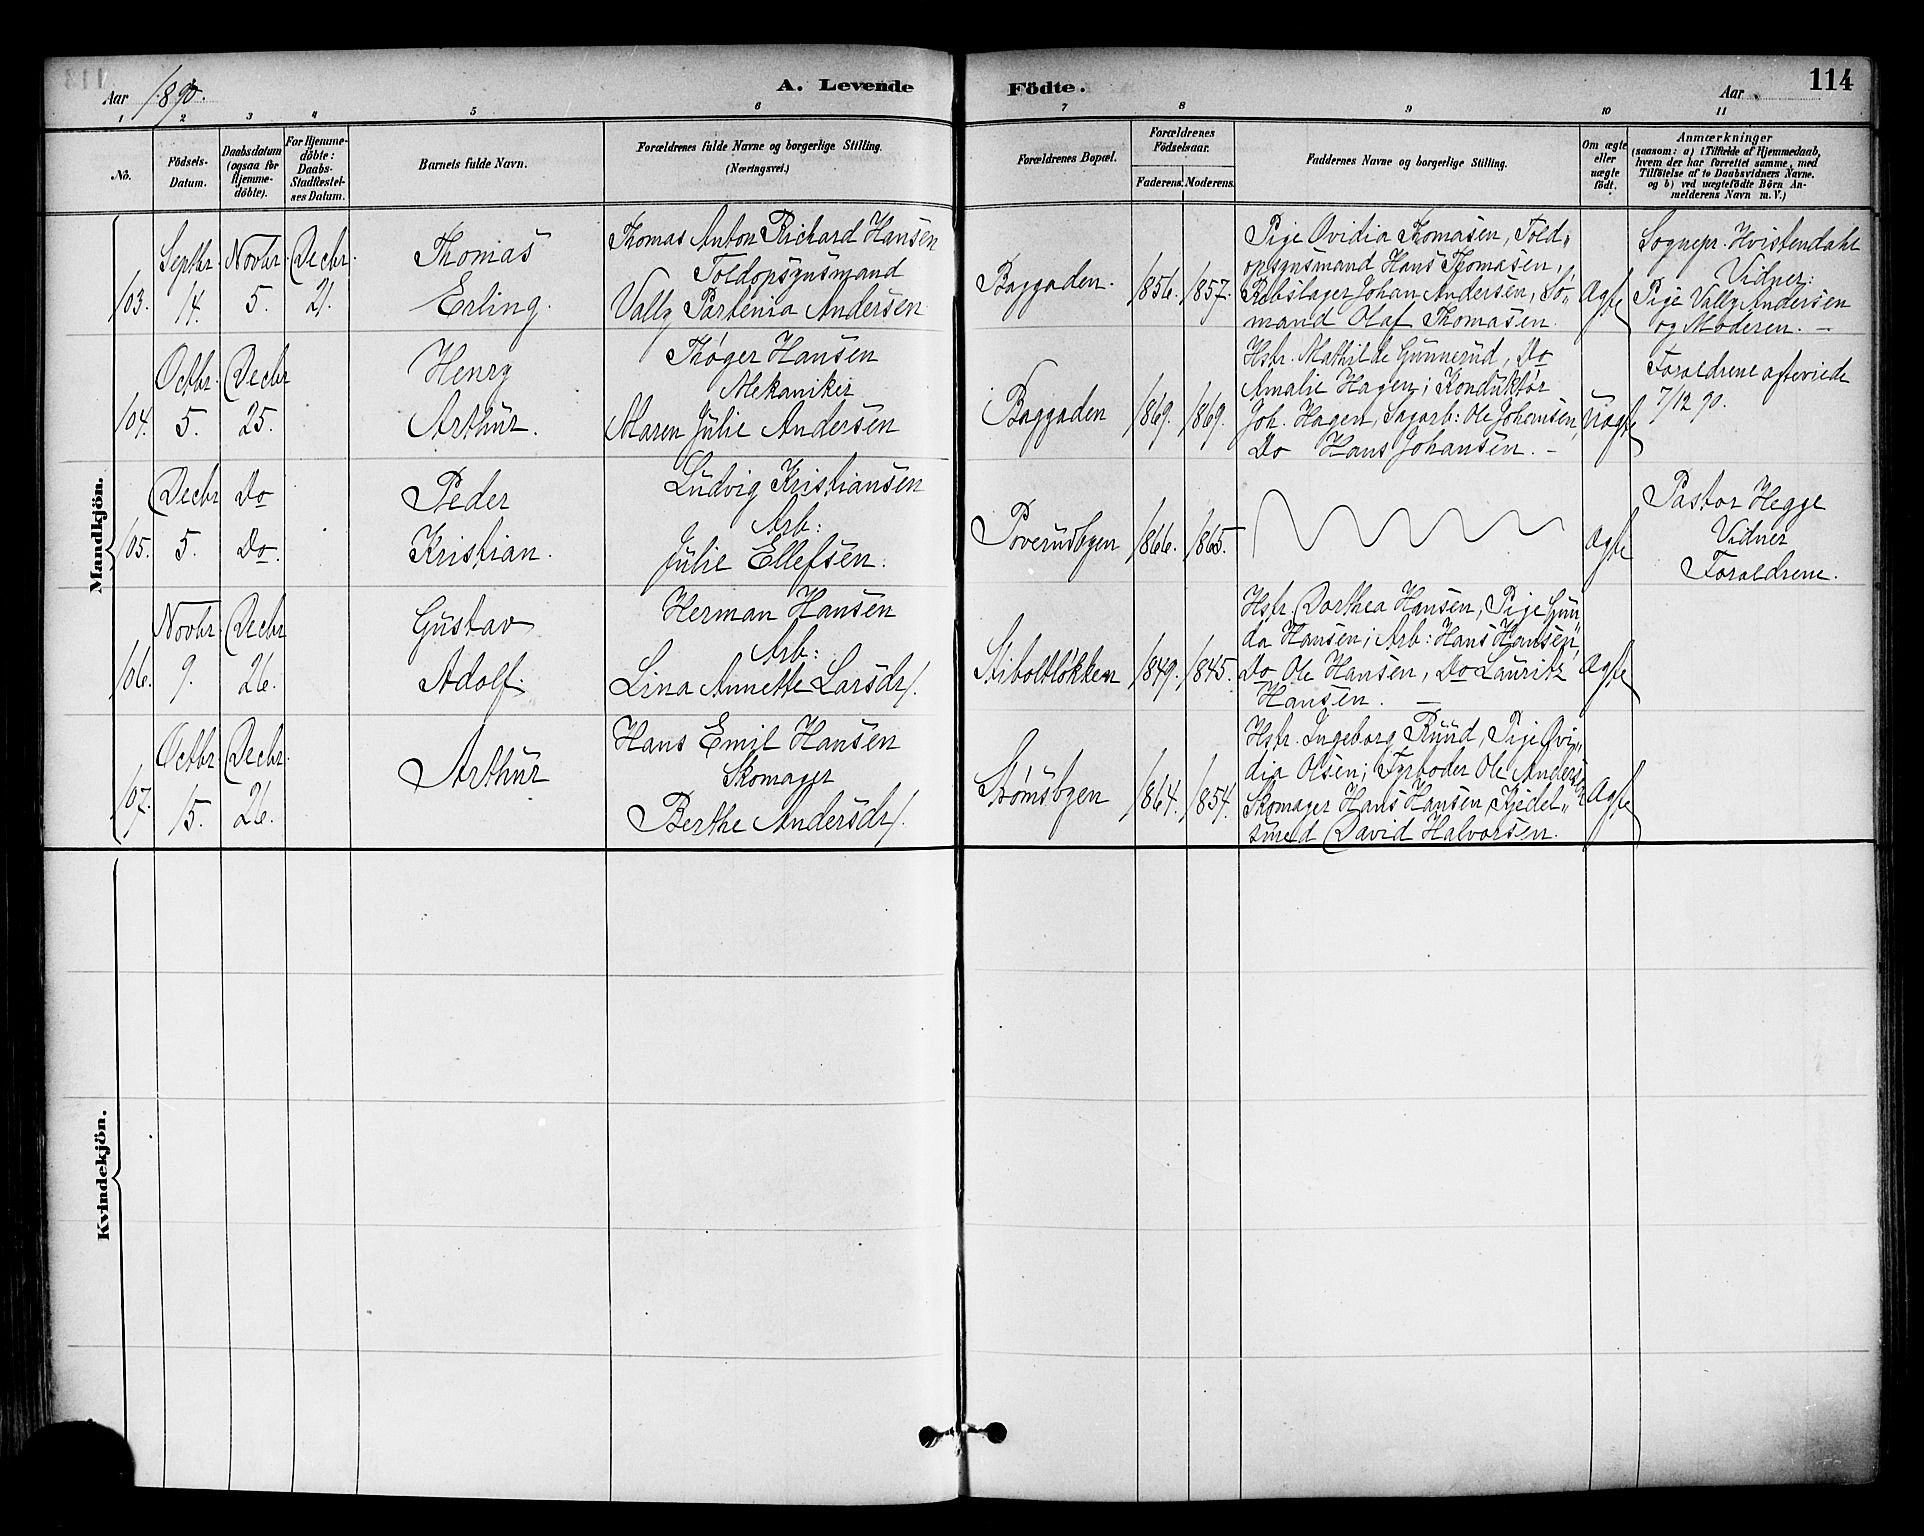 Aar 1890.
A. Levende Födte.
Aar
114
1 2 3 4 5 6 7 8 9 10 11
No.
Födsels-Datum.
Daabsdatum (ogsaa for Hjemme-döbte).
For Hjemme-döbte: Daabs-Stadfæstel-ses Datum.
Barnets fulde Navn.
Forældrenes fulde Navne og borgerlige Stilling. (Næringsvei.)
Forældrenes Bopæl.
Forældrenes Födselsaar.
Faderens. Moderens.
Faddernes Navne og borgerlige Stilling.
Om ægte eller uægte födt.
Anmærkninger
(saasom: a) i Tilfælde af Hjemmedaab, hvem der har forrettet samme, med Tilföielse af to Daabsvidners Navne. og b) ved uægtefödte Börn An-melderens Navn m. V.)
Mandkjön.
103. Septbr. 14. Novbr. 5. Decbr. 21.
Thomas
Erling.
Thomas Anton Richard Hansen
Toldopsynsmand
Vally Partenia Andersen
Baggaden. 1856. 1857.
Pige Ovidia Thomasen, Told„
opsynsmand Hans Thomasen,
Rebslager Johan Andersen, Sö„
mand Olaf Thomasen.
Ægte
Sognepr. Hvistendahl
Vidner:
Pige Vally Andersen
og Moderen. —
104. Octbr. 5. Decbr 25.
Henry
Arthur.
Thøger Hansen
Mekaniker
Maren Julie Andersen
Baggaden 1869. 1869.
Hstr. Mathilde Gunnerud, Do
Amalie Hagen; Konduktør
Joh. Hagen, Sagarb: Ole Johansen,
Do Hans Johansen. —
Uægte
Forældrene ægteviede
7/12 90.
105. Decbr 5. Do Do.
Peder
Kristian.
Ludvig Kristiansen
Arb:
Julie Ellefsen.
Poverudbyen 1866. 1865.
Ægte
Pastor Hegge
Vidner
Forældrene.
106. Novbr. 9. Decbr 26.
Gustav
Adolf.
Herman Hansen
Arb:
Lina Annette Larsdr/.
Stiboltløkken 1849. 1845.
Hstr. Dorthea Hansen, Pige Gun„
da Hansen; Arb: Hans Hansen,
Do Ole Hansen, Do Lauritz
Hansen. —
Ægte
107. Octbr. 15. Decbr. 26.
Arthur
Hans Emil Hansen
Skomager
Berthe Andersdr/.
Strømsbyen 1864. 1854.
Hstr. Ingeborg Ruud, Pige Ovi„
dia Olsen; Fyrbøder Ole Andersen
Skomager Hans Hansen, Kjedel„
smed David Halvorsen.
Ægte
Kvindekjön.